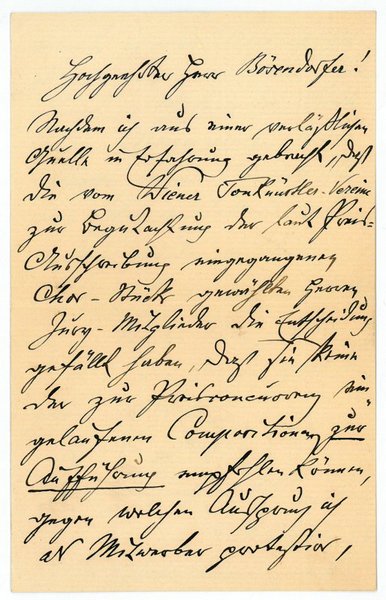 Hochgeehrter Herr Bösendorfer!
Nachdem ich aus einer verläßlichen
Quelle in Erfahrung gebracht, daß
die vom Wiener Tonkünstler-Vereine
zur Begutachtung der laut Preis-
Ausschreibung eingegangenen
Chor-Stücke gewählten Herren
Jury-Mitglieder die Entscheidung
gefällt haben, daß sie keine
der zur Preisconcurrenz ein-
gelaufenen Compositionen zur
Aufführung empfehlen können,
gegen welchen Ausspruch ich
als Mitwerber protestire,